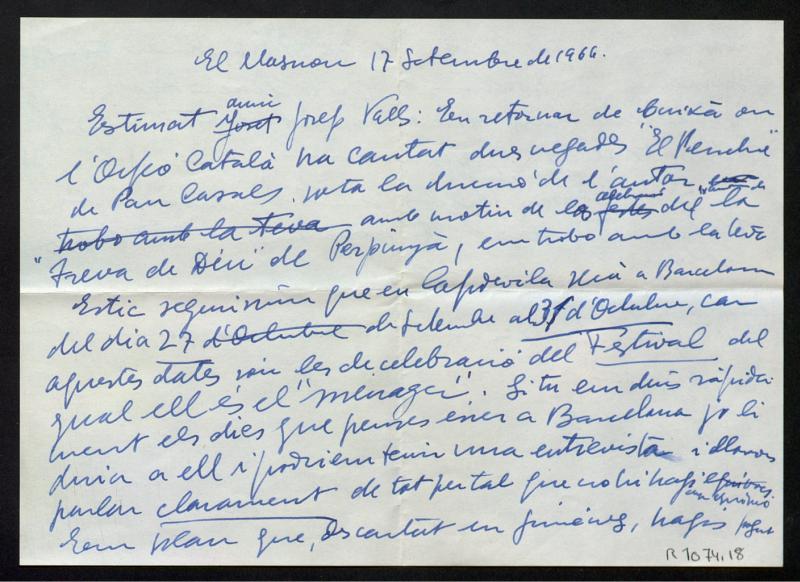 El Masnou 17 Setembre de 1966.
amic
Estimat Josep Josep Valls: En retornar de Cuixà on
l'Orfeó Català ha cantat dues vegades "El Pessebre"
de Pau Casals sota la direcció de l'autor
trobo amb la teva amb motiu de la festa del la
"Treva de Déu" de Perpinyà, em trobo amb la teva
Estic seguríssim que en Capdevila serà a Barcelona
del dia 27 d'Octubre de Setembre al 31 d'Octubre, car
aquestes dates són les de celebració del Festival del
qual ell és el "menager". Si tu em dius ràpida
ment els dies que penses ésser a Barcelona jo li
duria a ell i podríem tenir una entrevista i llavors
parlar clarament de tot per tal que no hi hagi equívocs
Com que, descartat en Giménez, hagis
R 1074.18